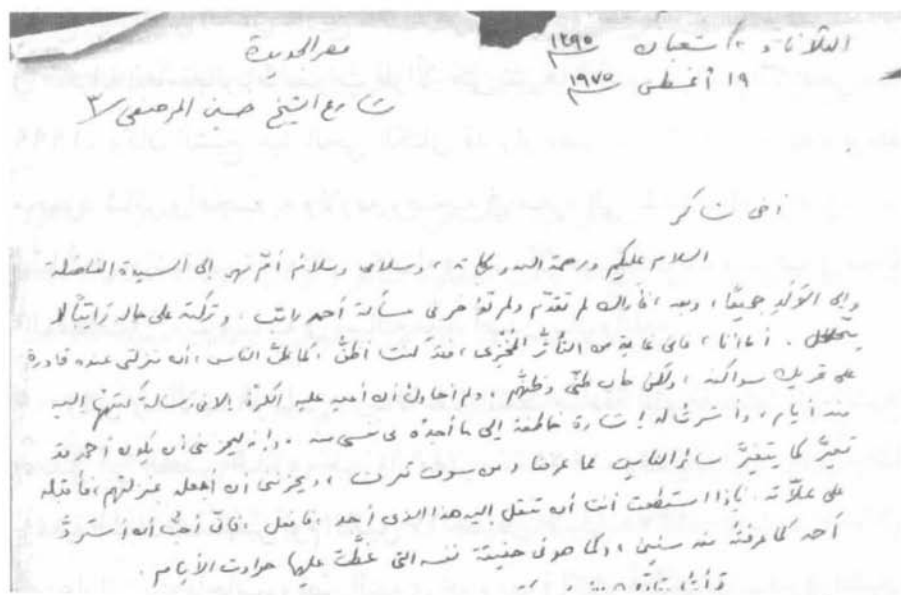 الثلاثاء ١٢ شعبان ١٣٩٥
مصر الجديدة
١٩ أغسطس ١٩٧٥
٣ شارع الشيخ حسين المرصفى
أخى شاكر
السلام عليكم ورحمة الله وبركاته، وسلامى وسلام أم فهر إلى السيدة الفاضلة
وإلى الأولاد جميعًا، وبعد، فأراك لم تقدم ولم تؤخر فى مسألة أحمد راتب، وتركته على حاله
يتحلل. أما أنا، فإنى فى غاية من التأثر المخزى، فقد كنت أظنّ، كما ظنّ الناس، أن منزلتى عنده قادرة
على تحريك سواكنه، ولكن خاب ظنّى وظنهم. ولم أحاول أن أعيد عليه الكرّة إلا فى رسالة كتبتها إليه
منذ أيام، وأشرت له إشارة خاطفة إلى ما أجده فى نفسى منه. وإنه ليحزننى أن يكون أحمد قد
تغيّر كما يتغيّر سائر الناس مما عرفنا ومن سوف نعرف، ويحزننى أن أجعله بمنزلتهم، فأقبله
على علاّته. فإذا استطعت أنت أن تنقل إليه هذا الذى أجد، فافعل، فإنى أحب أن أستردّ
أحمد كما عرفته منذ سنين، وكما هو فى حقيقة نفسه التى غطّت عليها حوادث الأيام.